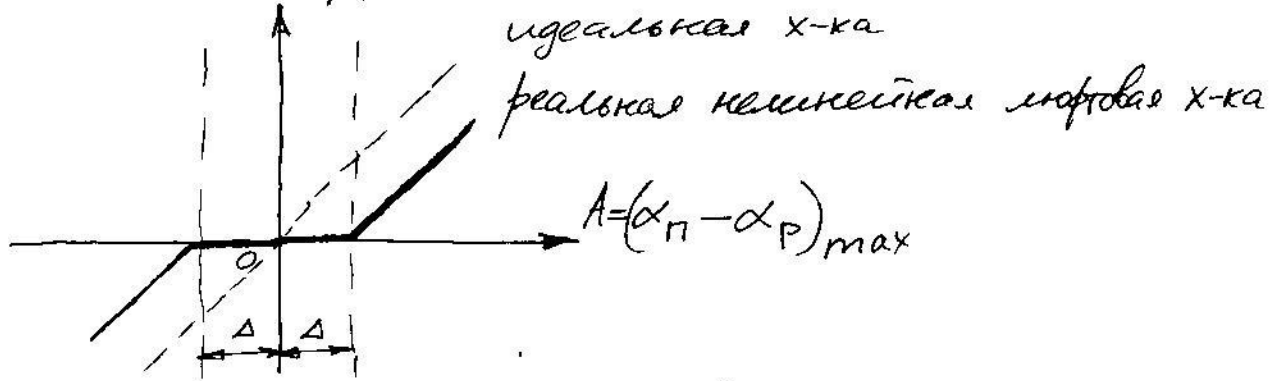 идеальная х-ка
реальная нелинейная люфтовая х-ка
A=(αп-αр)max
0
Δ Δ